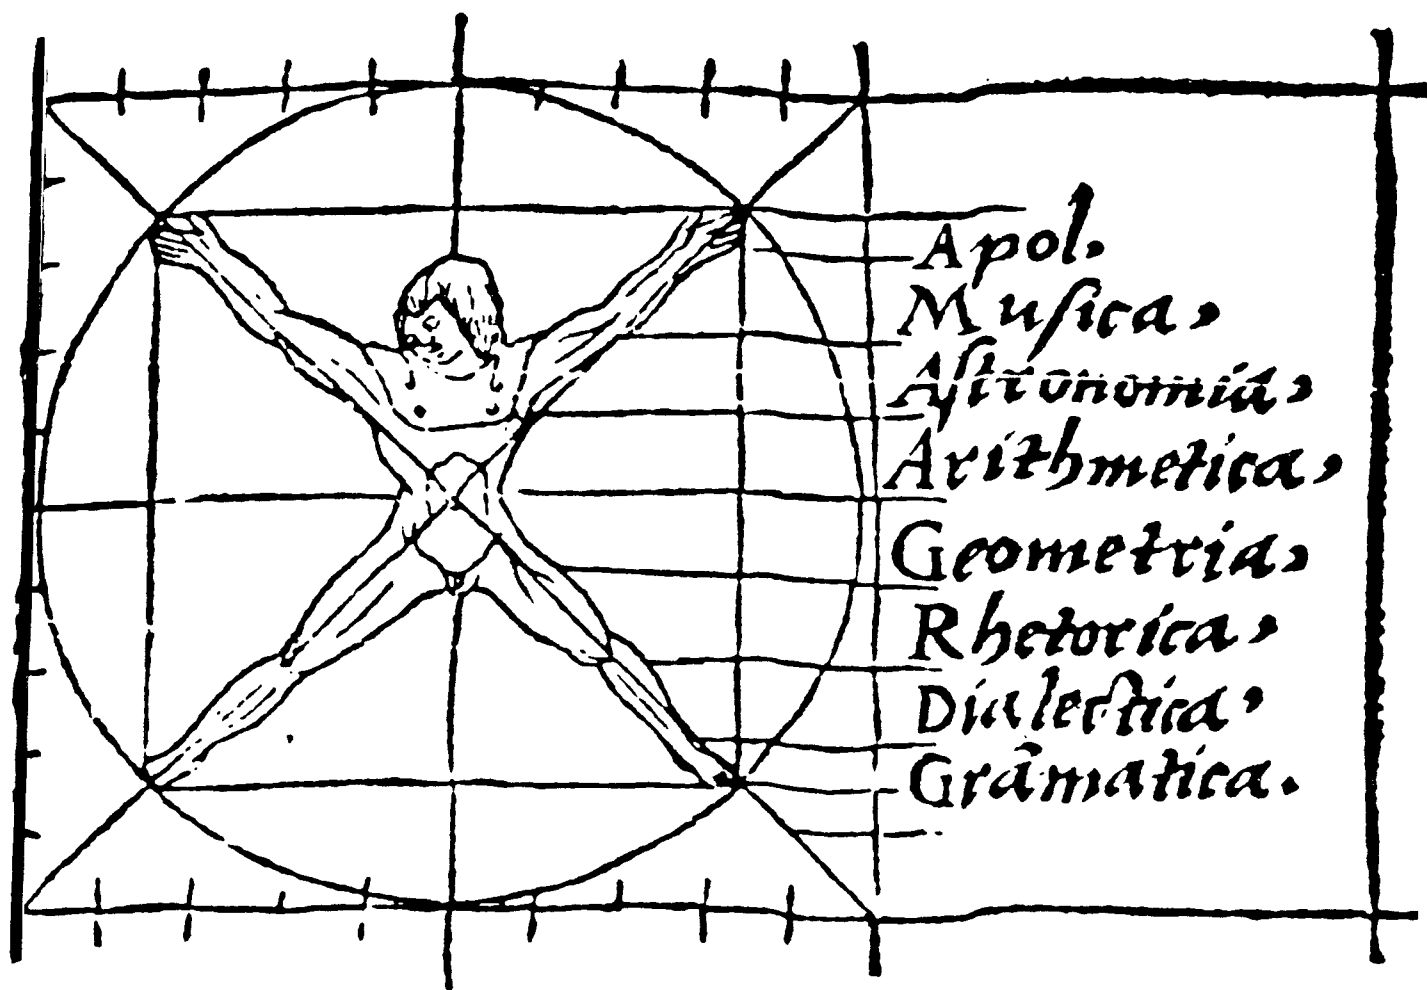 Apol.
Muſica,
Aſtronomia,
Arithmetica,
Geometria,
Rhetorica,
Dialectica,
Grãmatica.